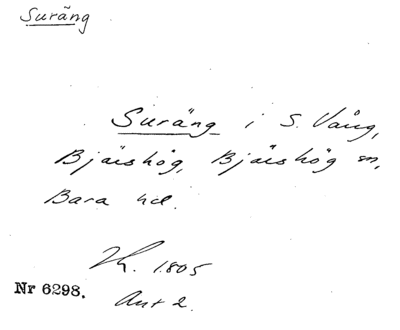 Suräng
Suräng i S. Vång,
Bjärshög, Bjärshög sn,
Bara hd.
Kh. 1805
Nr 6298.
Akt 2.